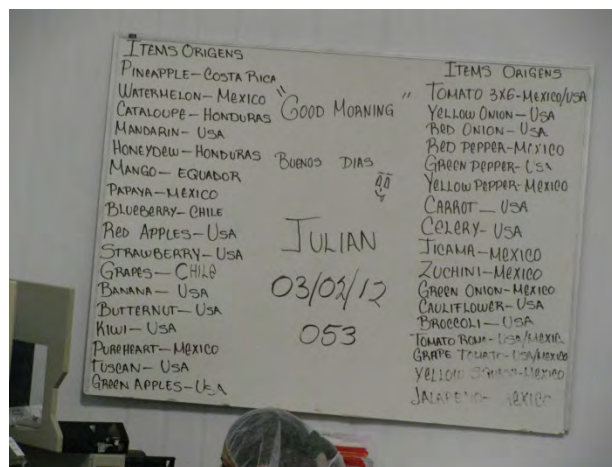 ITEMS ORIGENS
PINEAPPLE-COSTA RICA
WATERMELON-MEXICO
CATALOUPE-HONDURAS
MANDARIN-USA
HONEYDEW-HONDURAS
MANGO-EQUADOR
PAPAYA-MEXICO
BLUEBERRY-CHILE
RED APPLES-USA
STRAWBERRY-USA
GRAPES-CHILE
BANANA-USA
BUTTERNUT-USA
KIWI-USA
PUREHEART-MEXICO
TUSCAN-USA
GREEN APPLES-USA
"GOOD MORNING"
BUENOS DIAS
JULIAN
03/02/12
053
ITEMS ORIGENS
TOMATO 3X6-MEXICO/USA
YELLOW ONION-USA
RED ONION-USA
RED PEPPER-MEXICO
GREEN PEPPER-USA
YELLOW PEPPER-MEXICO
CARROT-USA
CELERY-USA
JICAMA-MEXICO
ZUCHINI-MEXICO
GREEN ONION-MEXICO
CAULIFLOWER-USA
BROCCOLI-USA
TOMATO ROMA-USA/MEXIC
GRAPE TOMATO-USA/MEXICO
YELLOW SQUASH-MEXICO
JALAPENO-MEXICO